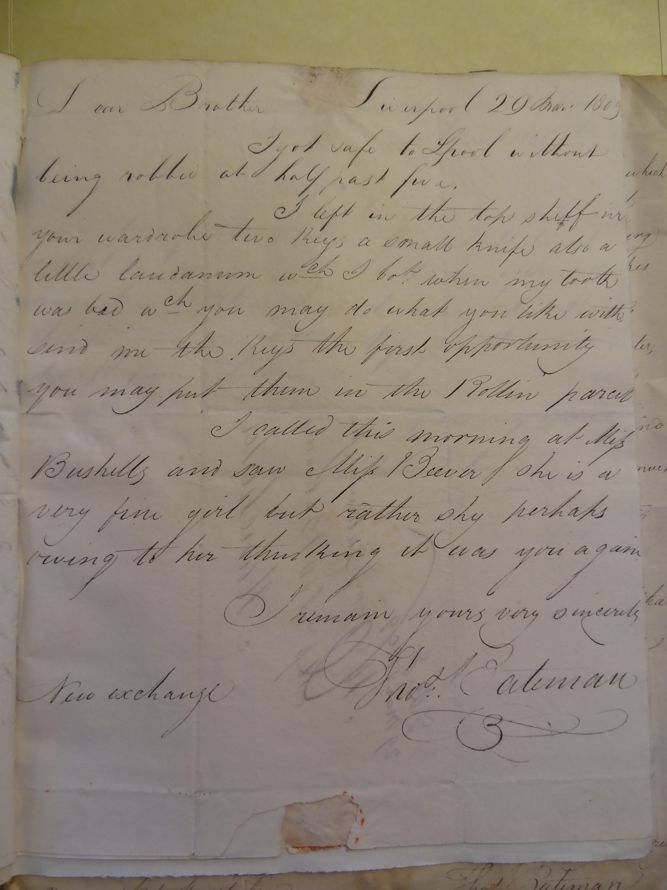 Dear Brother Liverpool 29 Mar. 1809
I got safe to Lpool without
being robbed at half past five.
I left in the top shelf in
your wardrobe two keys a small knife also a
little laudanum wch I bot. when my tooth
was bad wch you may do what you like with
send me the keys the first opportunity
you may put them in the Rollin parcel
I called this morning at Miss
Bushells and saw Miss Beever she is a
very fine girl but rather shy perhaps
owing to her thinking it was you again
I remain yours very sincerely
Thos. Bateman
New exchange
which
Bateman